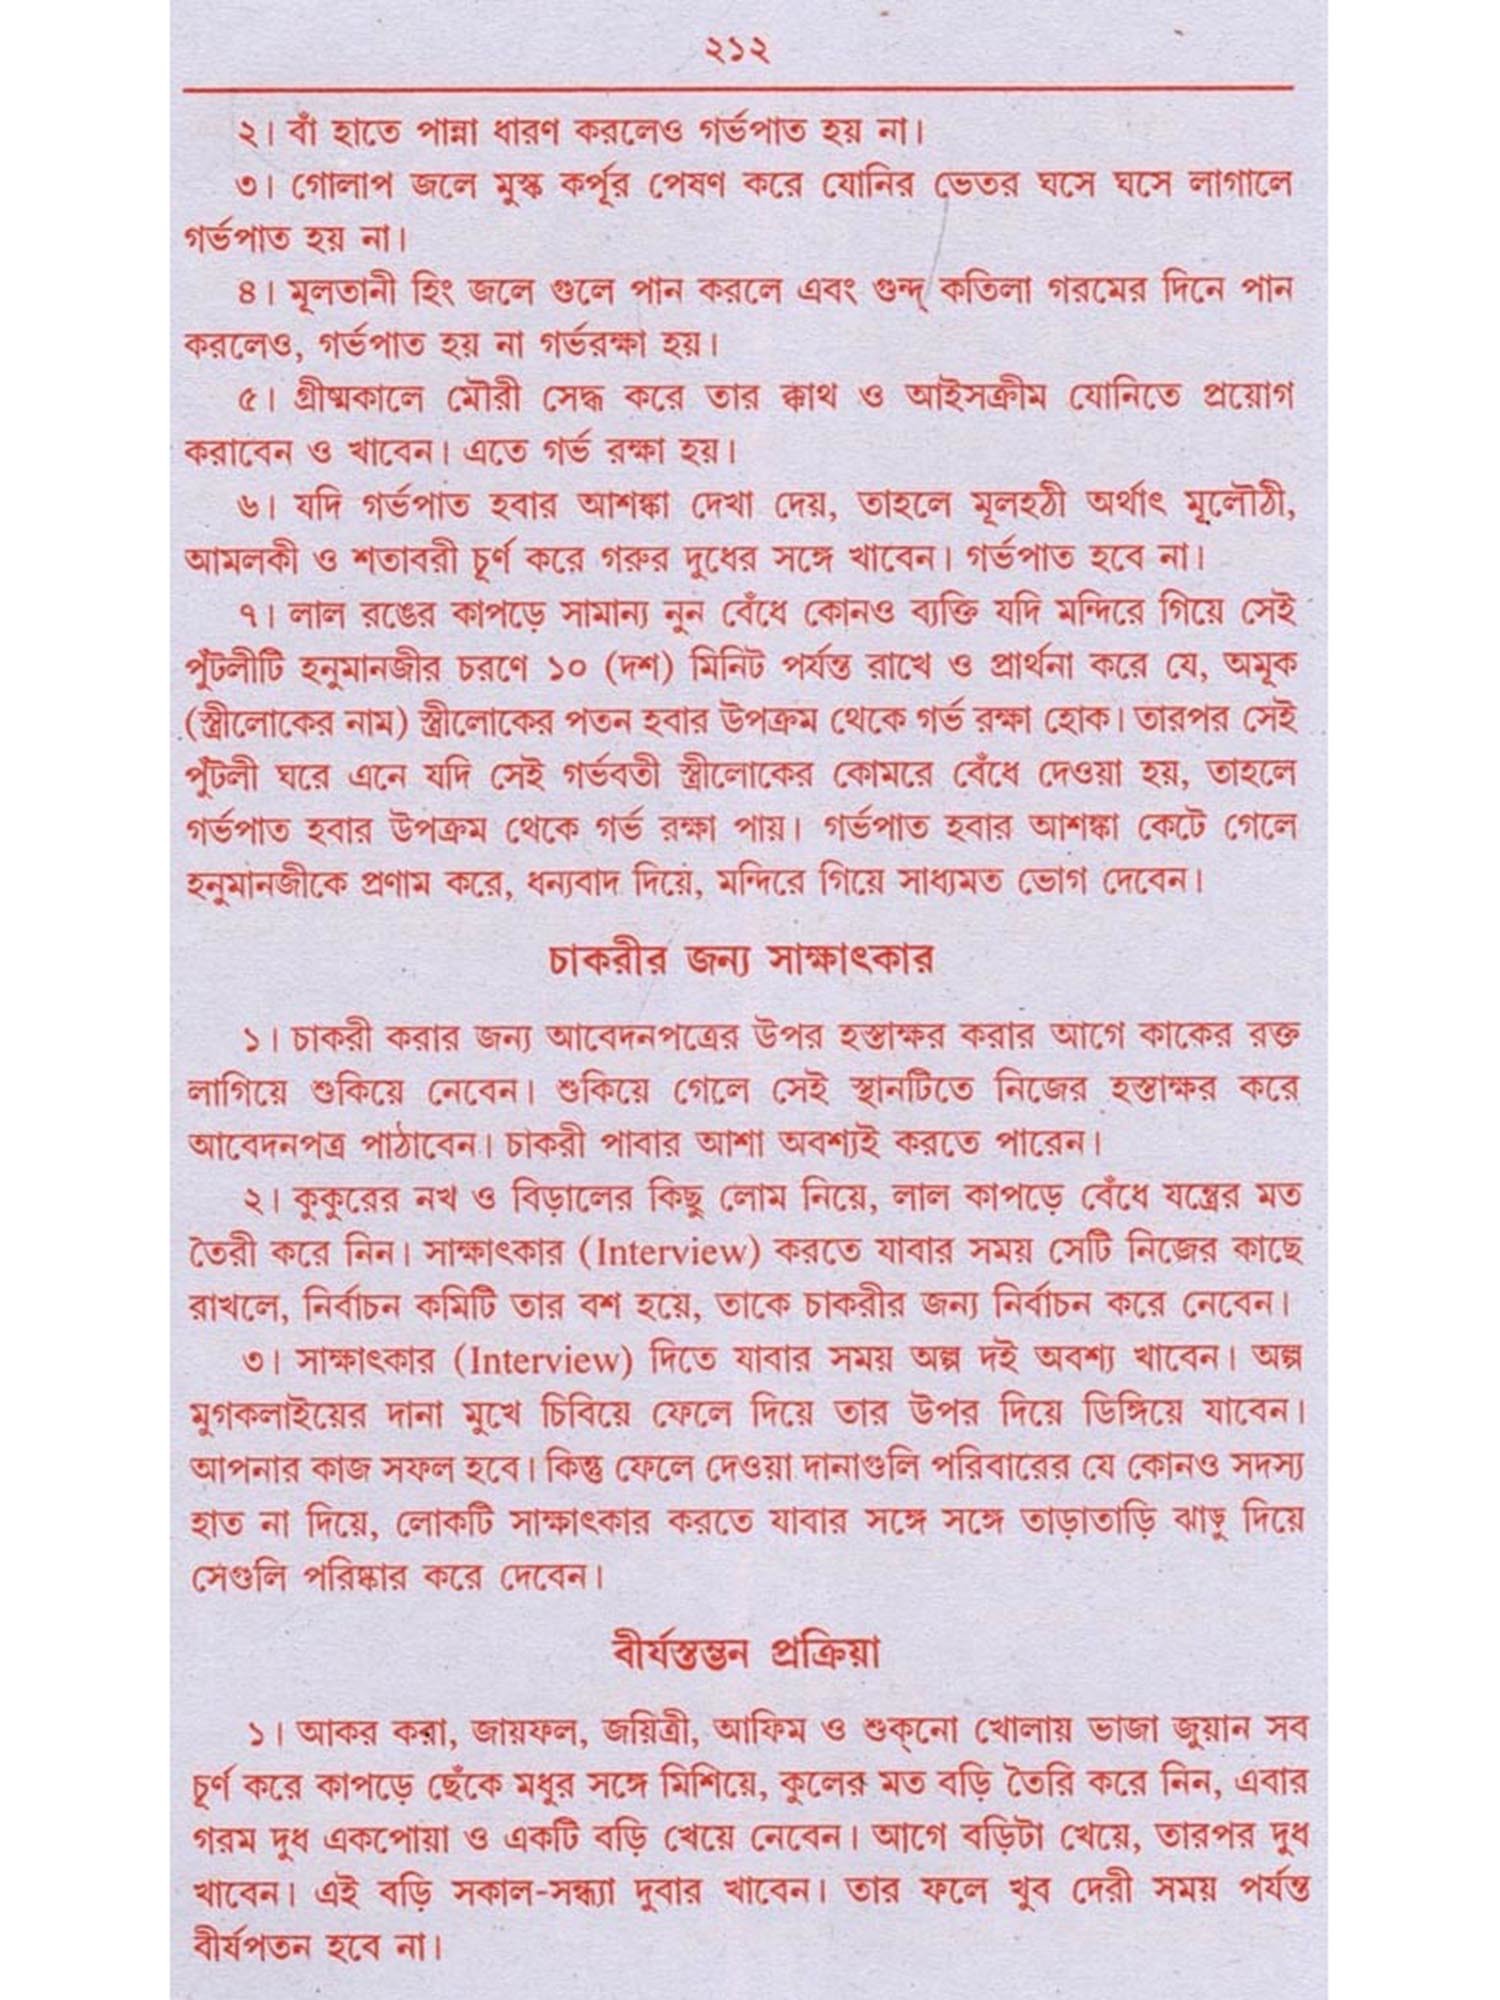 ২১২
২। বাঁ হাতে পান্না ধারণ করলেও গর্ভপাত হয় না।
৩। গোলাপ জলে মুস্ক কর্পূর পেষণ করে যোনির ভেতর ঘসে ঘসে লাগালে
গর্ভপাত হয় না।
৪। মূলতানী হিং জলে গুলে পান করলে এবং গুন্দ্ কতিলা গরমের দিনে পান
করলেও, গর্ভপাত হয় না গর্ভরক্ষা হয়।
৫। গ্রীষ্মকালে মৌরী সেদ্ধ করে তার ক্কাথ ও আইসক্রীম যোনিতে প্রয়োগ
করাবেন ও খাবেন। এতে গর্ভ রক্ষা হয়।
৬। যদি গর্ভপাত হবার আশঙ্কা দেখা দেয়, তাহলে মূলহঠী অর্থাৎ মূলৌঠী,
আমলকী ও শতাবরী চূর্ণ করে গরুর দুধের সঙ্গে খাবেন। গর্ভপাত হবে না।
৭। লাল রঙের কাপড়ে সামান্য নুন বেঁধে কোনও ব্যক্তি যদি মন্দিরে গিয়ে সেই
পুঁটলীটি হনুমানজীর চরণে ১০ (দশ) মিনিট পর্যন্ত রাখে ও প্রার্থনা করে যে, অমূক
(স্ত্রীলোকের নাম) স্ত্রীলোকের পতন হবার উপক্রম থেকে গর্ভ রক্ষা হোক। তারপর সেই
পুঁটলী ঘরে এনে যদি সেই গর্ভবতী স্ত্রীলোকের কোমরে বেঁধে দেওয়া হয়, তাহলে
গর্ভপাত হবার উপক্রম থেকে গর্ভ রক্ষা পায়। গর্ভপাত হবার আশঙ্কা কেটে গেলে
হনুমানজীকে প্রণাম করে, ধন্যবাদ দিয়ে, মন্দিরে গিয়ে সাধ্যমত ভোগ দেবেন।
চাকরীর জন্য সাক্ষাৎকার
১। চাকরী করার জন্য আবেদনপত্রের উপর হস্তাক্ষর করার আগে কাকের রক্ত
লাগিয়ে শুকিয়ে নেবেন। শুকিয়ে গেলে সেই স্থানটিতে নিজের হস্তাক্ষর করে
আবেদনপত্র পাঠাবেন। চাকরী পাবার আশা অবশ্যই করতে পারেন।
২। কুকুরের নখ ও বিড়ালের কিছু লোম নিয়ে, লাল কাপড়ে বেঁধে যন্ত্রের মত
তৈরী করে নিন। সাক্ষাৎকার (Interview) করতে যাবার সময় সেটি নিজের কাছে
রাখলে, নির্বাচন কমিটি তার বশ হয়ে, তাকে চাকরীর জন্য নির্বাচন করে নেবেন।
৩। সাক্ষাৎকার (Interview) দিতে যাবার সময় অল্প দই অবশ্য খাবেন। অল্প
মুগকলাইয়ের দানা মুখে চিবিয়ে ফেলে দিয়ে তার উপর দিয়ে ডিঙ্গিয়ে যাবেন।
আপনার কাজ সফল হবে। কিন্তু ফেলে দেওয়া দানাগুলি পরিবারের যে কোনও সদস্য
হাত না দিয়ে, লোকটি সাক্ষাৎকার করতে যাবার সঙ্গে সঙ্গে তাড়াতাড়ি ঝাড়ু দিয়ে
সেগুলি পরিষ্কার করে দেবেন।
বীর্যস্তম্ভন প্রক্রিয়া
১। আকর করা, জায়ফল, জয়িত্রী, আফিম ও শুক্‌নো খোলায় ভাজা জুয়ান সব
চূর্ণ করে কাপড়ে ছেঁকে মধুর সঙ্গে মিশিয়ে, কুলের মত বড়ি তৈরি করে নিন, এবার
গরম দুধ একপোয়া ও একটি বড়ি খেয়ে নেবেন। আগে বড়িটা খেয়ে, তারপর দুধ
খাবেন। এই বড়ি সকাল-সন্ধ্যা দুবার খাবেন। তার ফলে খুব দেরী সময় পর্যন্ত
বীর্যপতন হবে না।